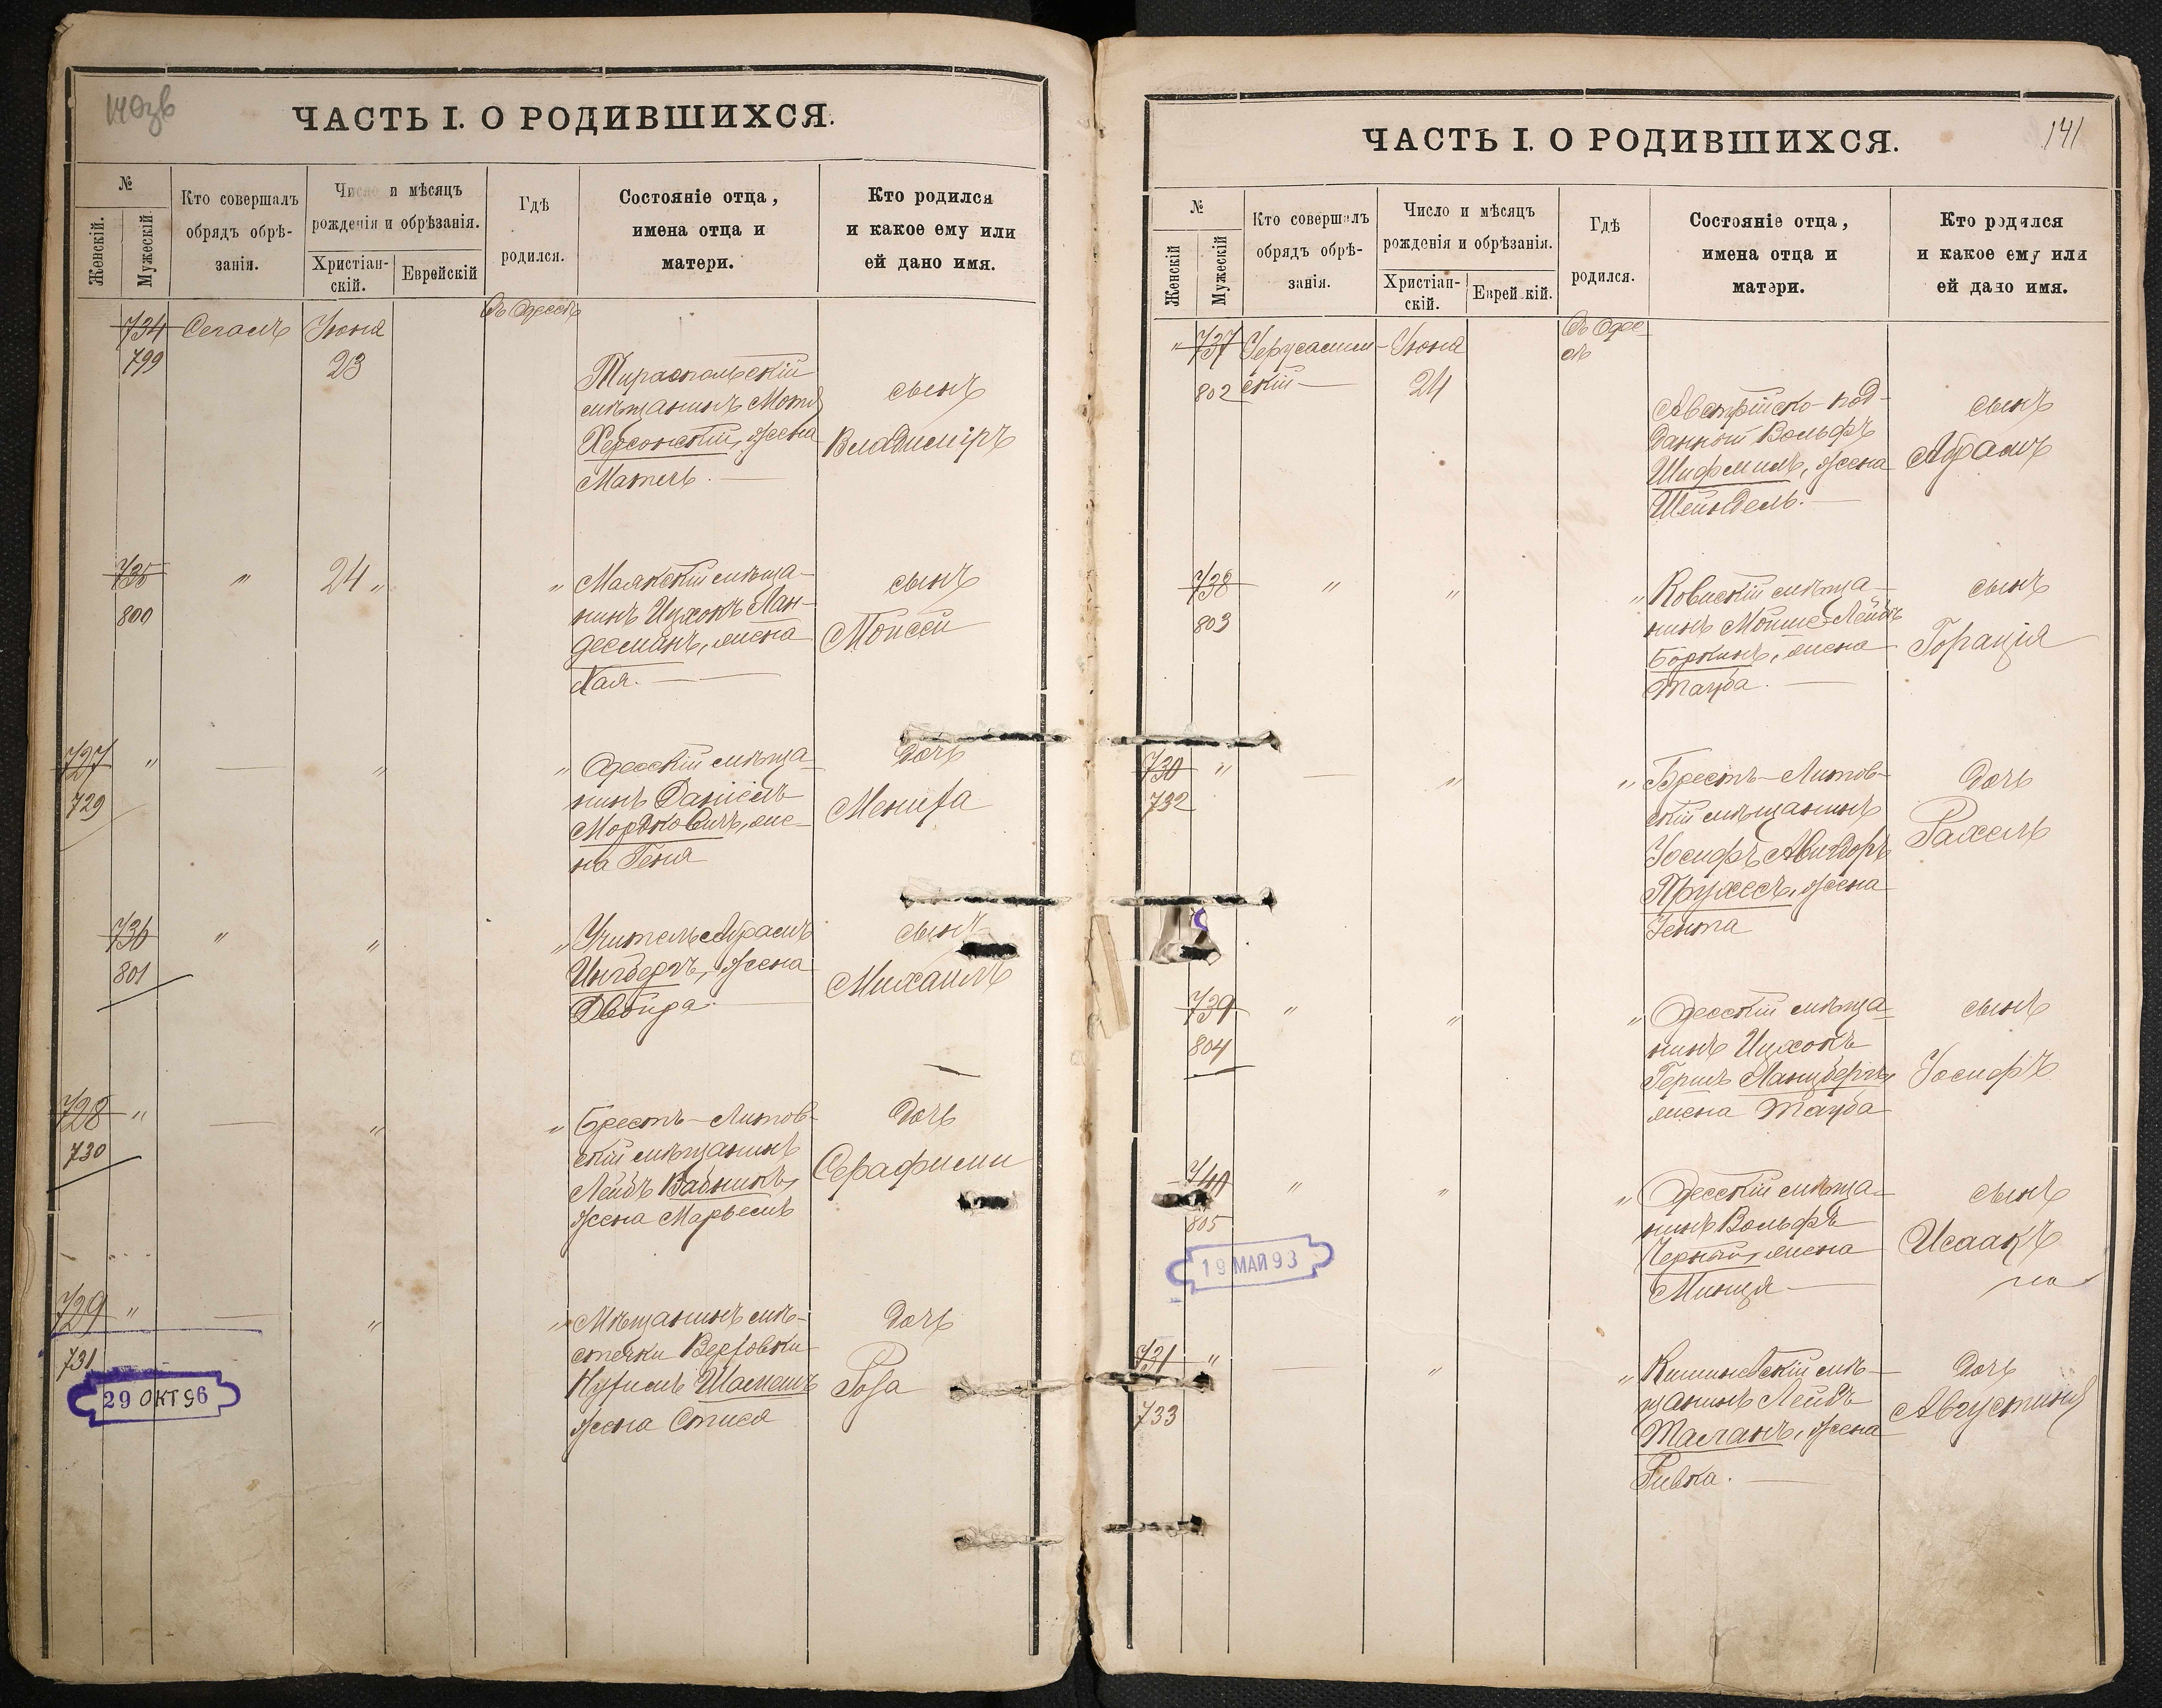 140зв
ЧАСТЬ I. О РОДИВШИХСЯ.
№
Женскій.
Мужескій
Кто совершалъ
обрядъ обрѣ-
занія.
Число и мѣсяцъ
рожденія и обрѣзанія.
Христіан-
скій.
Еврейскій
Гдѣ
родился.
Состояніе отца,
имена отца и
матери.
Кто родился
и какое ему или
ей дано имя.
734 Сегалъ Іюня Въ Одессѣ
799 23
Тираспольскій
мѣщанинъ Мотя
Херсонскій, жена
Матль.
сынъ
Владиміръ
735 " 24 " "
800
Маякскій мѣща-
нинъ Ицхокъ Лан-
десманъ, жена
Хая.
сынъ
Моисей
727 " — " "
729
Одесскій мѣща-
нинъ Даніель
Мордковичъ, же-
на Геня
дочь
736 " " "
801
Учитель Абрамъ
Ингберъ, жена
Двойра.
сынъ
Михаилъ
728 " — " "
730
Брестъ-Литов-
скій мѣщанинъ
Лейбъ
жена Марьемъ
дочь
729 " — " "
731
Мѣщанинъ мѣ-
стечки
жена
дочь
Роза
29 ОКТ 96
141
ЧАСТЬ I. О РОДИВШИХСЯ.
№
Женскій
Мужескій
Кто совершалъ
обрядъ обрѣ-
занія.
Число и мѣсяцъ
рожденія и обрѣзанія.
Христіан-
скій.
Еврей кій.
Гдѣ
родился.
Состояніе отца,
имена отца и
матери.
Кто родился
и какое ему или
ей дано имя.
" 737 Іерусалим- Іюня Въ Одес-
802 скій — 24 сѣ
Австрійско-под-
данный Вольфъ
жена
Шейндель.
сынъ
Абрамъ
738 " " "
803
Ковнскій мѣща-
нинъ Мойше-Лейбъ
Боркинъ, жена
Тауба.
сынъ
Горація
730 " — " "
732
Брестъ-Литов-
скій мѣщанинъ
Іосифъ Авигдоръ
Пружесъ, жена
Іента
дочь
Рахель
739 " " "
804
Одесскій мѣща-
нинъ Ицхокъ
Гершъ Ланцбергъ,
жена Тауба
сынъ
Іосифъ
740 " " "
805
Одесскій мѣща-
нинъ Вольфъ
Черный, жена
Минця
сынъ
Исаакъ
19 МАЙ 93
731 " — " "
733
Кишиневскій мѣ-
щанинъ Лейбъ
Талланъ, жена
Ривка.
дочь
Августина